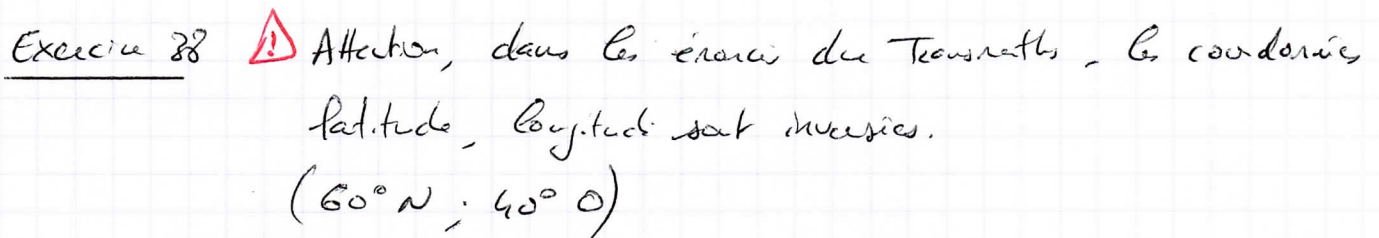 Exercice 38 ⚠ Attention, dans les énoncés du Transmaths, les coordonnées
latitude, longitude sont inversées.
(60° N ; 40° O)